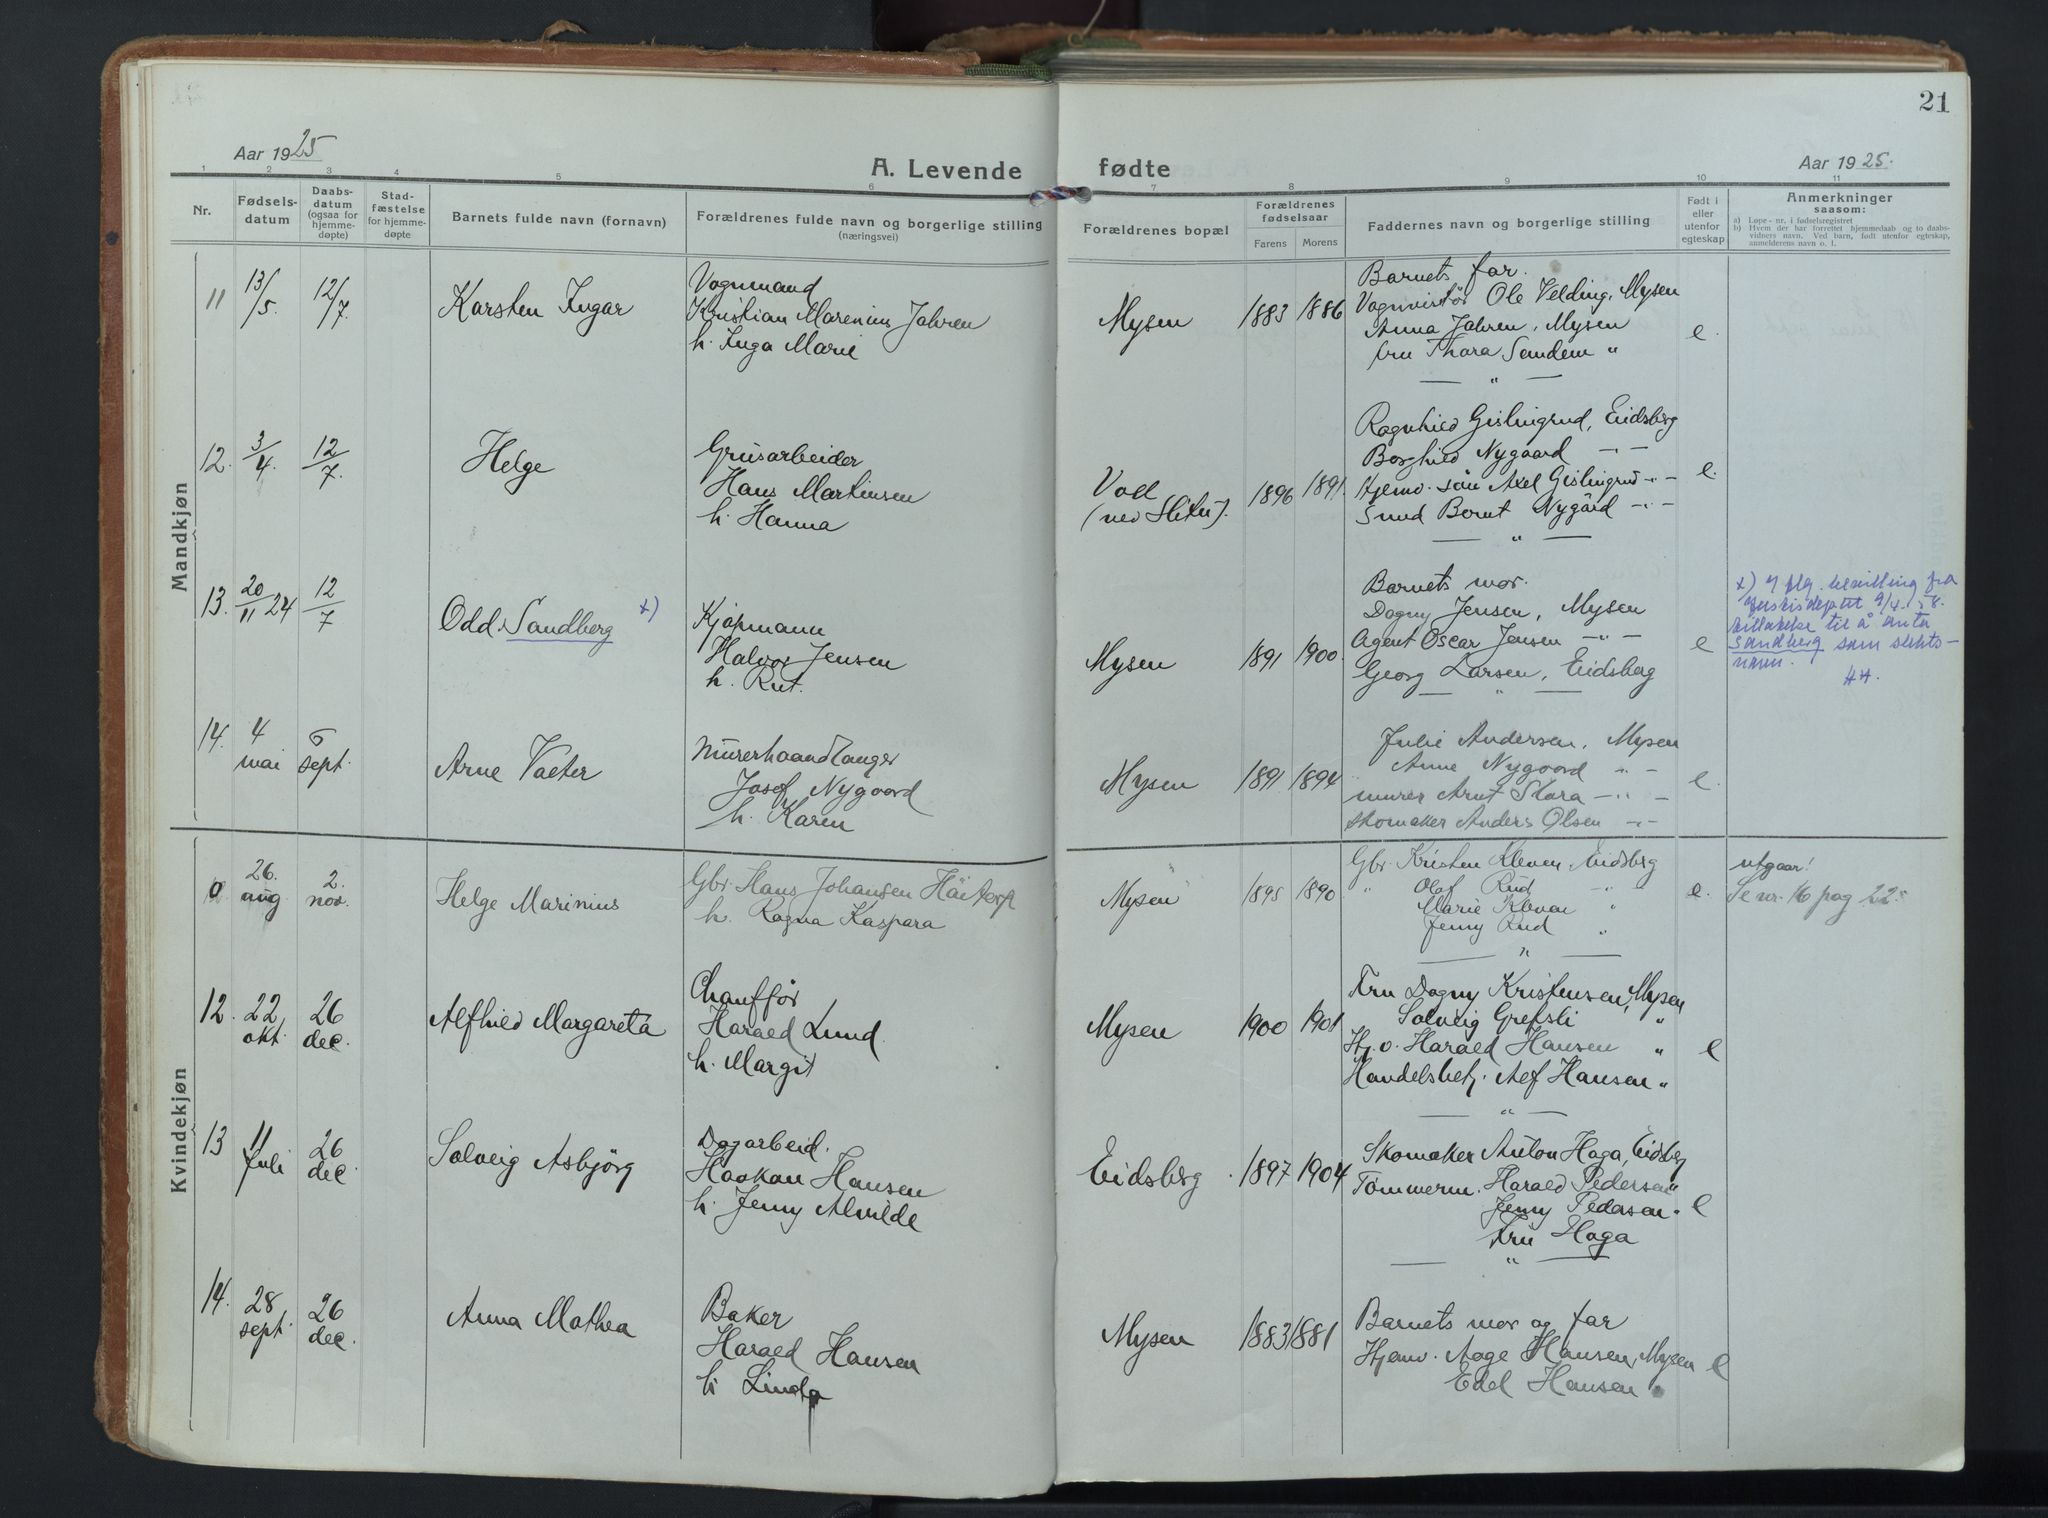 21
Aar 1925
A. Levende fødte
Aar 1925.
1 2 3 4 5 6 7 8 9 10 11
Nr.
Fødselsdatum
Daabsdatum (ogsaa for hjemmedøpte)
Stadfæstelse for hjemmedøpte
Barnets fulde navn (fornavn)
Forældrenes fulde navn og borgerlige stilling (næringsvei)
Forældrenes bopæl
Forældrenes fødselsaar
Farens
Morens
Faddernes navn og borgerlige stilling
Født i eller utenfor egteskap
Anmerkninger saasom:
a) Løpe-nr. i fødselsregistret
b) Hvem der har forrettet hjemmedaab og to daabsvidners navn. Ved barn, født utenfor egteskap, anmelderens navn o. l.
Mandkjøn
11 13/5. 12/7. Karsten Ingar
Vognmand
Kristian Marenius Jahren
h. Inga Marie
Mysen 1883 1886
Barnets far.
Ole Velding, Mysen
Anna Jahren, Mysen
fru Thora Sandem "
— " —
e.
12. 3/4. 12/7. Helge
Grusarbeider
Hans Martinsen
h. Hanna
(ved Slitu). 1896 1891.
Ragnhild Gislingrud, Eidsberg
Borghild Nygaard — " —
Hjemv. søn Axel Gislingrud - " -
Bernt Nygård — " —
— " —
e.
13. 20/11 24 12/7 Odd Sandberg x)
Kjøpmann
Halvor Jensen
h. Rut.
Mysen 1891 1900.
Barnets mor.
Dagny Jensen, Mysen
Agent Oscar Jensen — " —
Georg Larsen, Eidsberg
— " —
e
x) Iflg. bevilling fra
Justisdeptet 9/4. 58.
tillatelse til å anta
Sandberg som slektsnavn.
HH.
14. 4 mai 6 sept. Arne Valter
Murerhaandlanger
Josef Nygaard
h. Karen
Mysen 1891 1894
Julie Andersen, Mysen
Anne Nygaard — " —
murer Arnt Skara — " —
skomaker Anders Olsen — " —
e.
Kvindekjøn
26. aug. 2. nov. Helge Marinius
Gbr. Hans Johansen
h. Ragna Kaspara
Mysen 1895 1890
Gbr. Kristen Kleven, Eidsberg
" Olaf Rud — " —
Marie Kleven "
Jenny Rud "
— " —
e.
utgaar!
Se nr. 16 pag 22.
12. 22. okt. 26 dec. Alfhild Margareta
Chauffør
Harald Lund.
h. Margit
Mysen 1900 1901
Fru Dagny Kristensen, Mysen
Solveig Grefsli "
Hj. v. Harald Hansen "
Handelsbetj. Alf Hansen "
— " —
e
13 11 Juli 26 dec. Solveig Asbjörg
Dagarbeid.
Haakon Hansen
h. Jenny Alvilde
Eidsberg. 1897 1904
Skomaker Anton Haga, Eidsberg
Tømmerm. Harald Pedersen "
Jenny Pedersen "
Fru Haga
— " —
e
14. 28. sept. 26 dec. Anna Mathea
Baker
Harald Hansen
h Linda
Mysen 1883 1881
Barnets mor og far
Hjemv. Aage Hansen, Mysen
Edel Hansen "
e